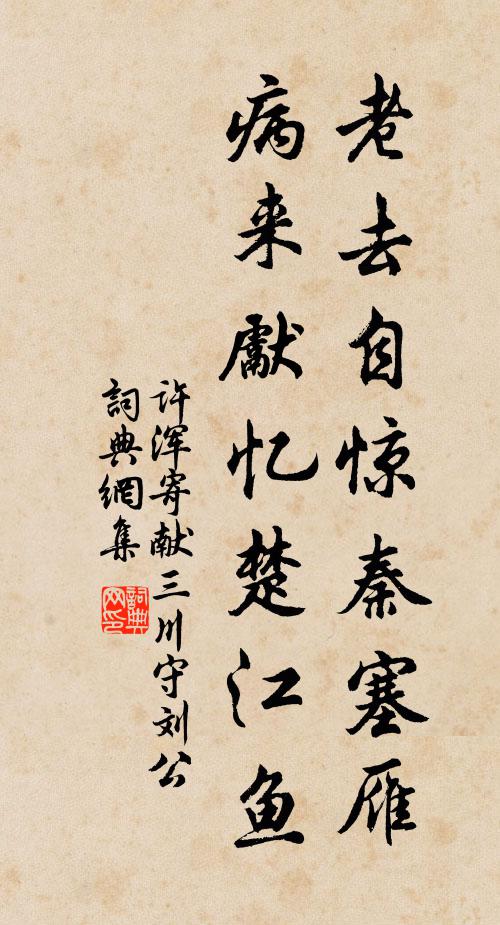 老去自惊秦塞雁
病来獻忆楚江鱼
许浑寄献三川守刘公
詞典網集
詞典网印